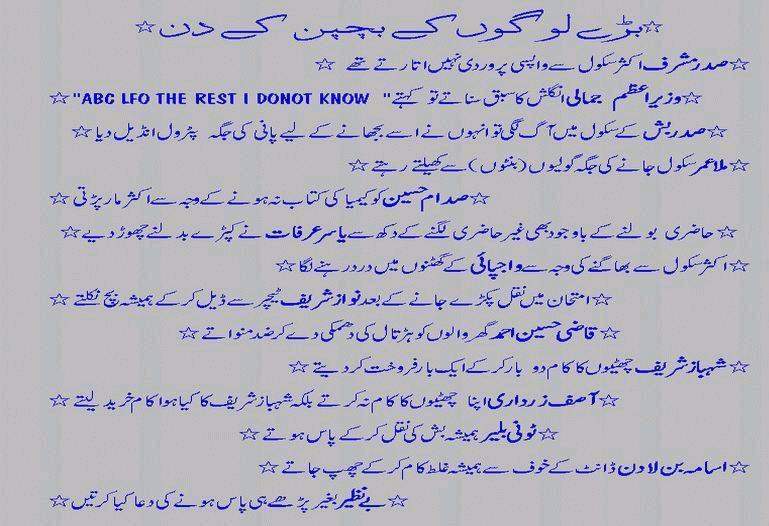 ☆بڑے لوگوں کے بچپن کے دن☆
☆صدر مشرف اکثر سکول سے واپسی پر وردی نہیں اتارتے تھے ☆
☆وزیراعظم جمالی انگلش کا سبق سناتے تو کہتے "ABC LFO THE REST I DONOT KNOW"☆
☆صدر بش کے سکول میں آگ لگی تو انہوں نے اسے بجھانے کے لیے پانی کی جگہ پٹرول انڈیل دیا ☆
☆ملا عمر سکول جانے کی جگہ گولیوں (بنٹوں) سے کھیلتے رہتے ☆
☆صدام حسین کو کیمیا کی کتاب نہ ہونے کے وجہ سے اکثر مار پڑتی ☆
☆ حاضری بولنے کے باوجود بھی غیر حاضری لگنے کے دکھ سے یاسر عرفات نے کپڑے بدلنے چھوڑ دیے☆
☆اکثر سکول سے بھاگنے کی وجہ سے واجپائی کے گھٹنوں میں درد رہنے لگا ☆
☆امتحان میں نقل پکڑے جانے کے بعد نواز شریف ٹیچر سے ڈیل کر کے ہمیشہ بچ نکلتے ☆
☆ قاضی حسین احمد گھر والوں کو ہڑتال کی دھمکی دے کر ضد منواتے ☆
☆شہباز شریف چھٹیوں کا کام دو بار کر کے ایک بار فروخت کر دیتے ☆
☆آصف زرداری اپنا چھٹیوں کا کام نہ کرتے بلکہ شہباز شریف کا کیا ہوا کام خرید لیتے ☆
☆ٹونی بلیر ہمیشہ بش کی نقل کر کے پاس ہوتے ☆
☆اسامہ بن لادن ڈانٹ کے خوف سے ہمیشہ غلط کام کر کے چھپ جاتے ☆
☆بے نظیر بغیر پڑھے ہی پاس ہونے کی دعا کیا کرتیں ☆